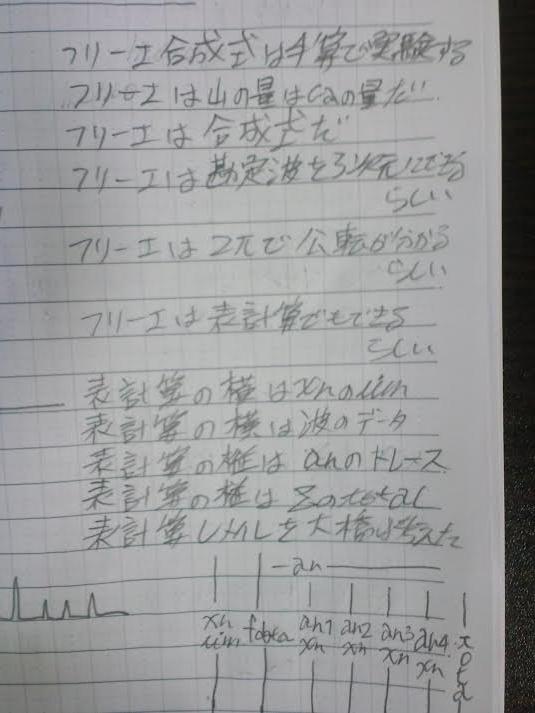 フリーエ合成式は手算で実験する
フリーエは山の量はcaの量だ
フリーエは合成式だ
フリーエは勘定波を3次元にできる
らしい
フリーエは2πで公転が分かる
らしい
フリーエは表計算でもできる
らしい
表計算の横はxnのlim
表計算の横は波のデータ
表計算の桩は anのトレース
表計算の桩は Σのtotal
表計算 を大橋は考えた
an
xn lim
fdata
an1 xn
an2 xn
an3 xn
an4 xn